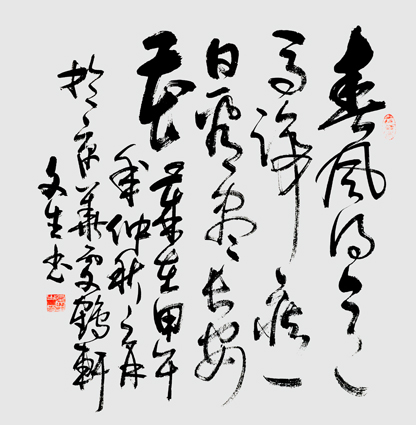 春風得意
馬蹄疾一
日看盡長安
花 歲在甲午
年仲秋之月
於京華鶴軒
文生书